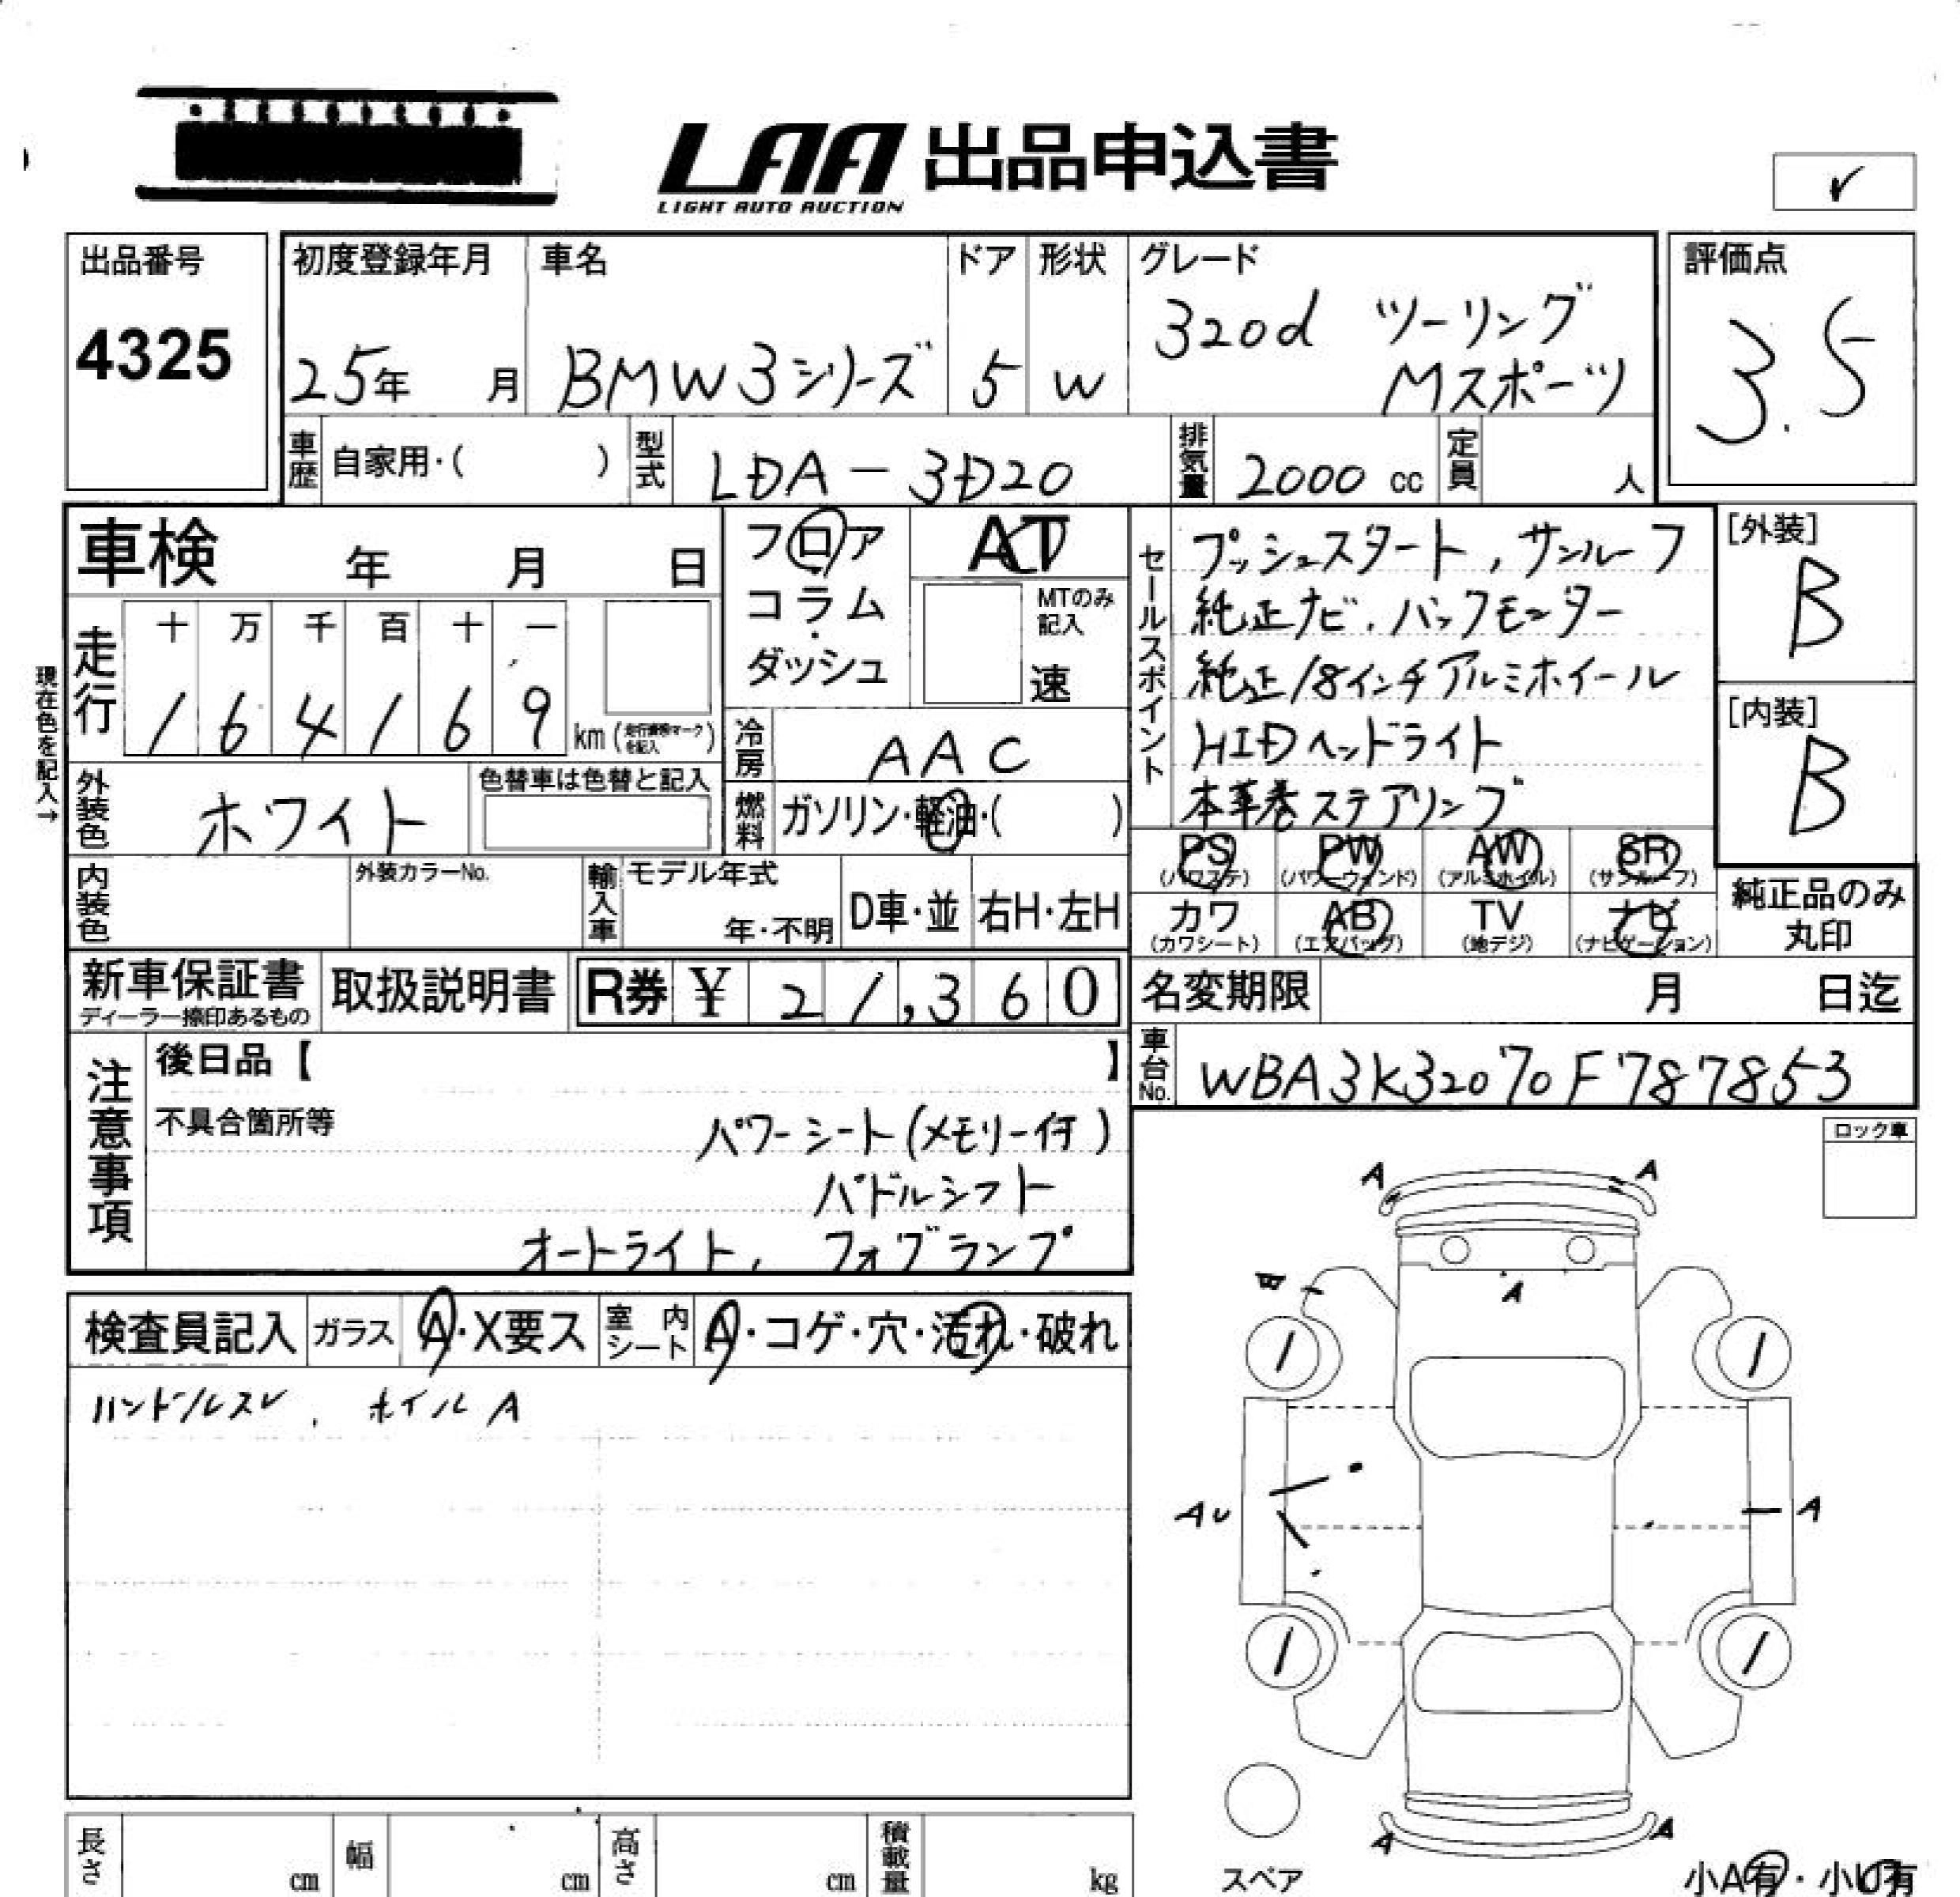 LAA 出品申込書
LIGHT AUTO AUCTION
出品番号
4325
初度登録年月
25年 月
車名
BMW3シリーズ
ドア
5
形状
W
グレード
320d ツーリング
Mスポーツ
評価点
3.5
車歴 自家用・( )
型式 LDA-3D20
排気量 2000 cc
定員 人
車検 年 月 日
現在色を記入→
走行
十 万 千 百 十 一
1 6 4 1 6 9 km
フロア
コラム
ダッシュ
AT
MTのみ
記入
速
冷房 AAC
燃料 ガソリン・軽油・( )
外装色 ホワイト
色替車は色替と記入
内装色
外装カラーNo.
輸入車
モデル年式
年・不明
D車・並
右H・左H
セールスポイント
プッシュスタート, サンルーフ
純正ナビ, バックモニター
純正18インチアルミホイール
HIDヘッドライト
本革巻ステアリング
[外装]
B
[内装]
B
PS (パワステ)
PW (パワーウィンド)
AW (アルミホイル)
SR (サンルーフ)
カワ (カワシート)
AB (エアバッグ)
TV (地デジ)
ナビ (ナビゲーション)
純正品のみ
丸印
新車保証書
ディーラー捺印あるもの
取扱説明書
R券 ¥ 21,360
名変期限 月 日迄
車台No. WBA3K32070F787853
注意事項
後日品【 】
不具合箇所等
パワーシート(メモリー付)
パドルシフト
オートライト, フォグランプ
検査員記入
ガラス A・X要ス
室内シート A・コゲ・穴・汚れ・破れ
ハンドルスレ, ホイルA
ロック車
A A
A
AU
A
A A
スペア
小A有・小U有
長さ cm
幅 cm
高さ cm
積載量 kg